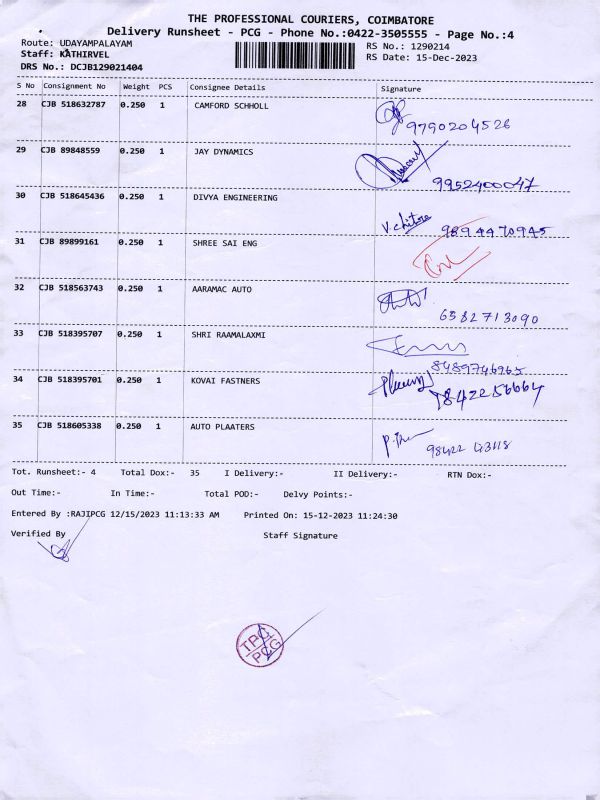 THE PROFESSIONAL COURIERS, COIMBATORE
Delivery Runsheet - PCG - Phone No.:0422-3505555 - Page No.:4
Route: UDAYAMPALAYAM
RS No.: 1290214
Staff: KATHIRVEL
RS Date: 15-Dec-2023
DRS No.: DCJB129021404
S No Consignment No Weight PCS Consignee Details Signature
28 CJB 518632787 0.250 1 CAMFORD SCHHOLL
9790204526
29 CJB 89848559 0.250 1 JAY DYNAMICS
9952400047
30 CJB 518645436 0.250 1 DIVYA ENGINEERING
V. chitra 9894470945
31 CJB 89899161 0.250 1 SHREE SAI ENG
32 CJB 518563743 0.250 1 AARAMAC AUTO
6382713090
33 CJB 518395707 0.250 1 SHRI RAAMALAXMI
8489746965
34 CJB 518395701 0.250 1 KOVAI FASTNERS
9842256664
35 CJB 518605338 0.250 1 AUTO PLAATERS
98422 43118
Tot. Runsheet:- 4 Total Dox:- 35 I Delivery:- II Delivery:- RTN Dox:-
Out Time:- In Time:- Total POD:- Delvy Points:-
Entered By :RAJIPCG 12/15/2023 11:13:33 AM Printed On: 15-12-2023 11:24:30
Verified By Staff Signature
TPC
PCG